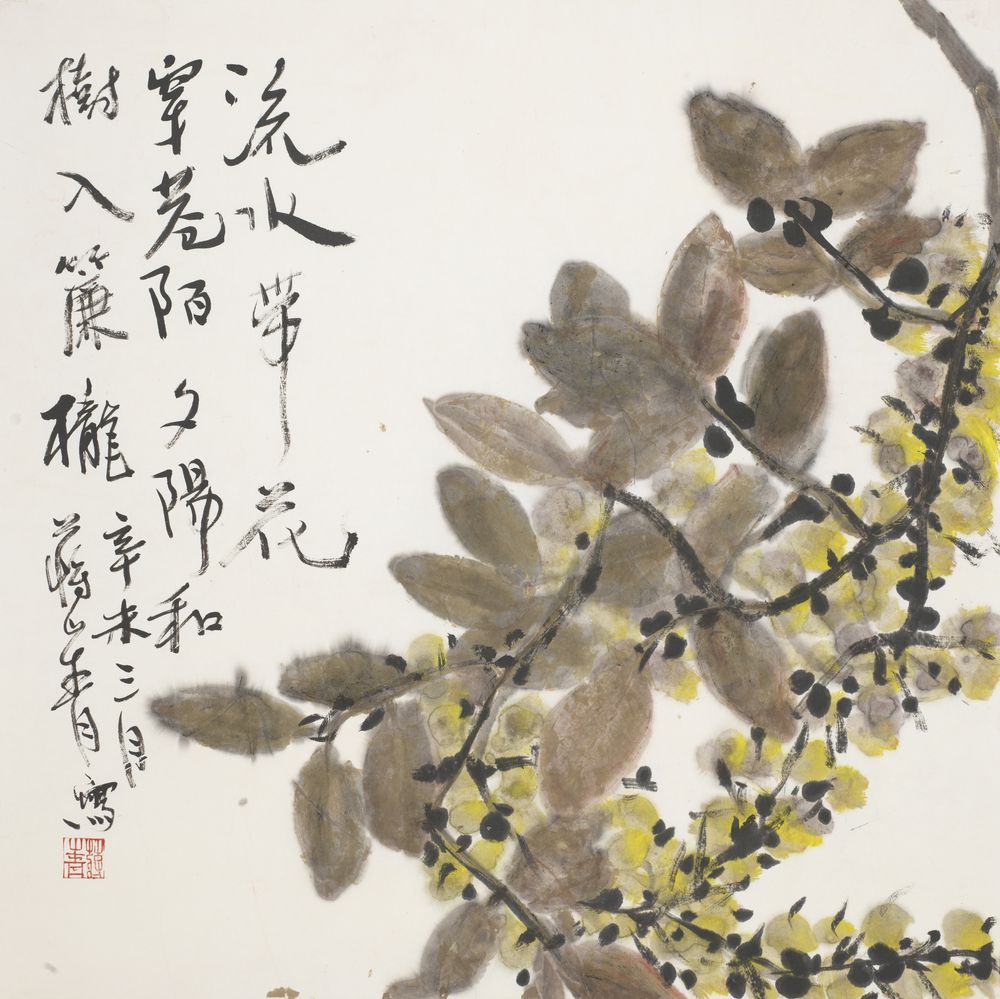 流水帶花
穿巷陌夕陽和
樹入簾櫳
辛未三月
蔣山青寫